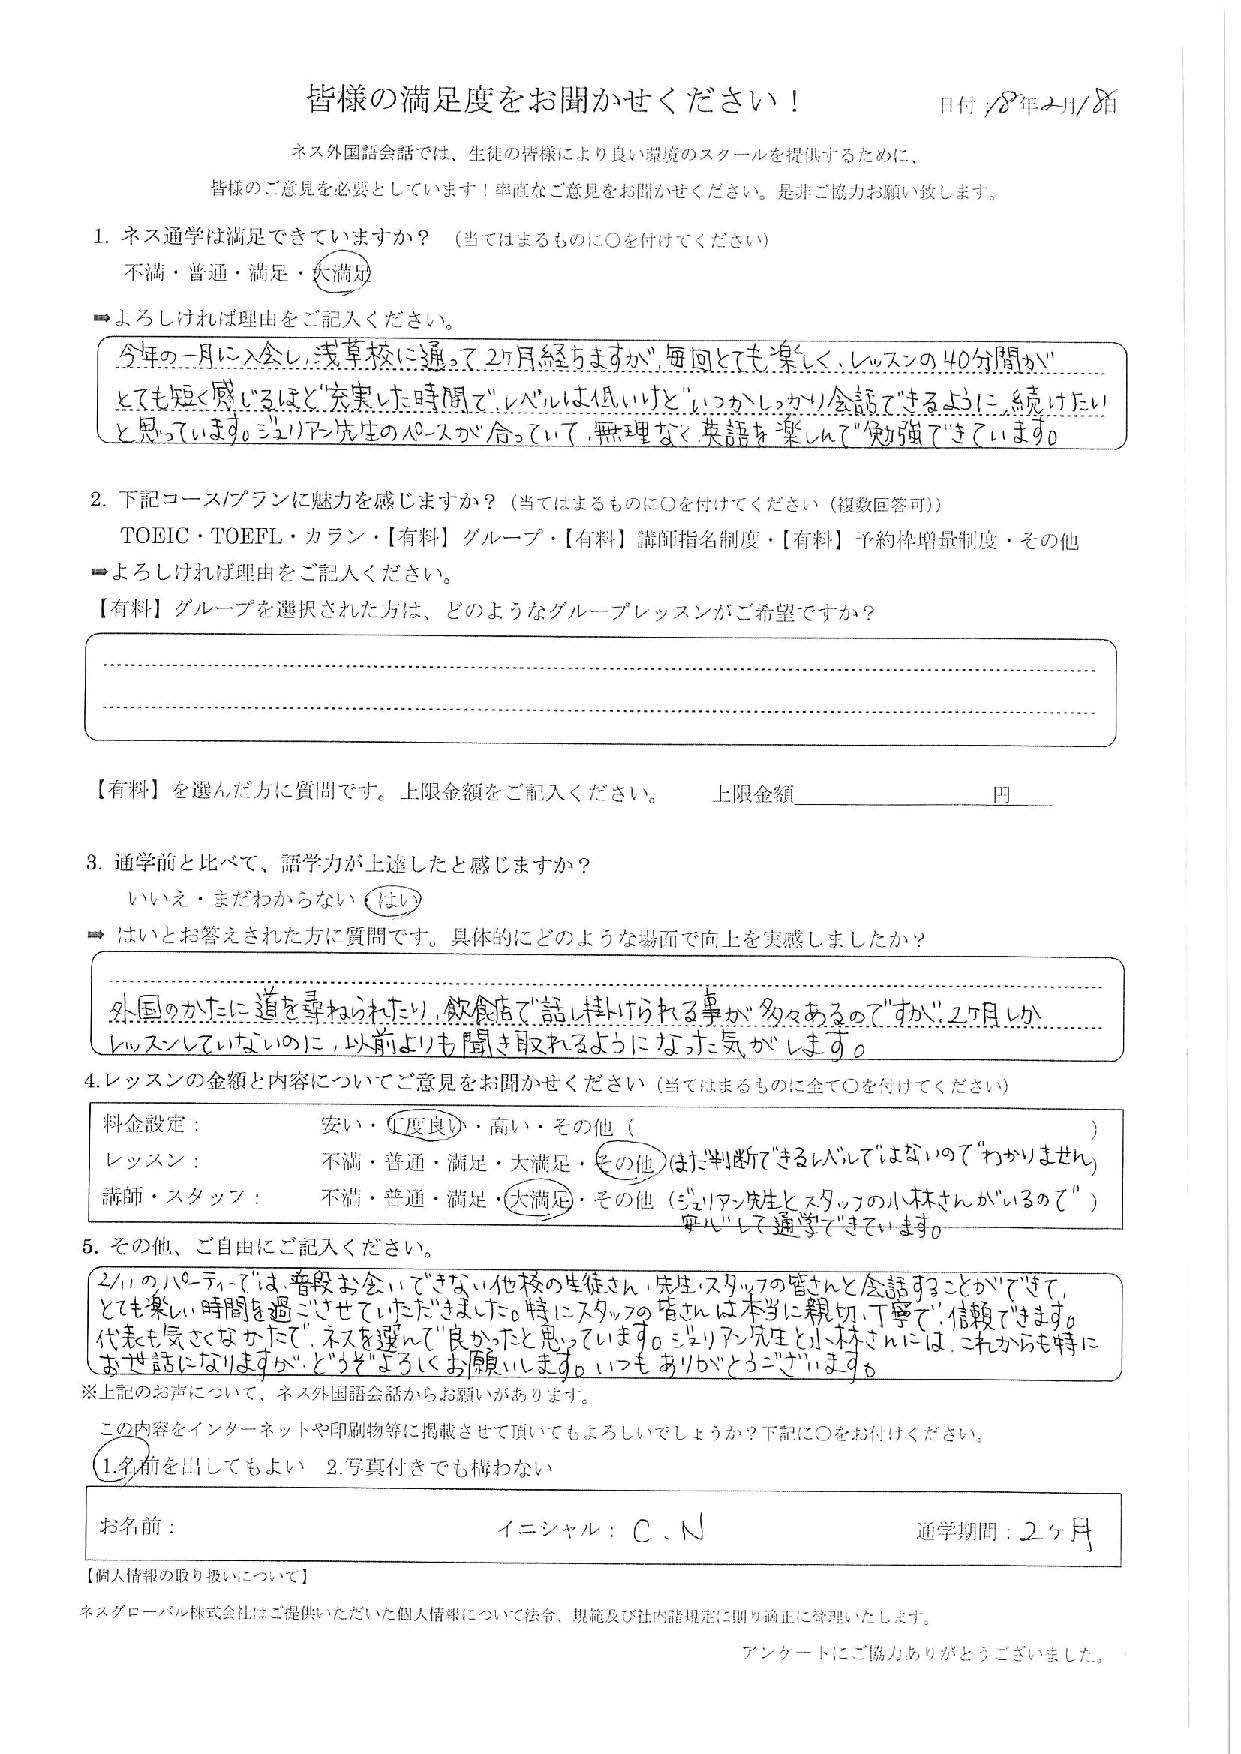 皆様の満足度をお聞かせください！
日付 '18年2月18日
ネス外国語会話では、生徒の皆様により良い環境のスクールを提供するために、
皆様のご意見を必要としています！率直なご意見をお聞かせください。是非ご協力お願い致します。
1. ネス通学は満足できていますか？ （当てはまるものに○を付けてください）
不満・普通・満足・大満足
➡よろしければ理由をご記入ください。
今年の一月に入会し、浅草校に通って2ヶ月経ちますが、毎回とても楽しく、レッスンの40分間が
とても短く感じるほど充実した時間で、レベルは低いけどいつかしっかり会話できるように、続けたい
と思っています。ジュリアン先生のペースが合っていて、無理なく英語を楽しんで勉強できています。
2. 下記コース/プランに魅力を感じますか？（当てはまるものに○を付けてください（複数回答可））
TOEIC・TOEFL・カラン・【有料】グループ・【有料】講師指名制度・【有料】予約枠増量制度・その他
➡よろしければ理由をご記入ください。
【有料】グループを選択された方は、どのようなグループレッスンがご希望ですか？
【有料】を選んだ方に質問です。上限金額をご記入ください。 上限金額 円
3. 通学前と比べて、語学力が上達したと感じますか？
いいえ・まだわからない・はい
➡ はいとお答えされた方に質問です。具体的にどのような場面で向上を実感しましたか？
外国のかたに道を尋ねられたり、飲食店で話し掛けられる事が多々あるのですが、2ヶ月しか
レッスンしていないのに、以前よりも聞き取れるようになった気がします。
4.レッスンの金額と内容についてご意見をお聞かせください（当てはまるものに全て○を付けてください）
料金設定： 安い・丁度良い・高い・その他（ ）
レッスン： 不満・普通・満足・大満足・その他（まだ判断できるレベルではないのでわかりません）
講師・スタッフ： 不満・普通・満足・大満足・その他（ジュリアン先生とスタッフの小林さんがいるので ）
安心して通学できています。
5. その他、ご自由にご記入ください。
2/11のパーティーでは、普段お会いできない他校の生徒さん、先生・スタッフの皆さんと会話することができて、
とても楽しい時間を過ごさせていただきました。特にスタッフの皆さんは本当に親切、丁寧で、信頼できます。
代表も気さくなかたで、ネスを選んで良かったと思っています。ジュリアン先生と小林さんには、これからも特に
お世話になりますが、どうぞよろしくお願いします。いつもありがとうございます。
※上記のお声について、ネス外国語会話からお願いがあります。
この内容をインターネットや印刷物等に掲載させて頂いてもよろしいでしょうか？下記に○をお付けください。
1.名前を出してもよい 2.写真付きでも構わない
お名前： イニシャル： C．N 通学期間：2ヶ月
【個人情報の取り扱いについて】
ネスグローバル株式会社はご提供いただいた個人情報について法令、規範及び社内諸規定に則り適正に管理いたします。
アンケートにご協力ありがとうございました。